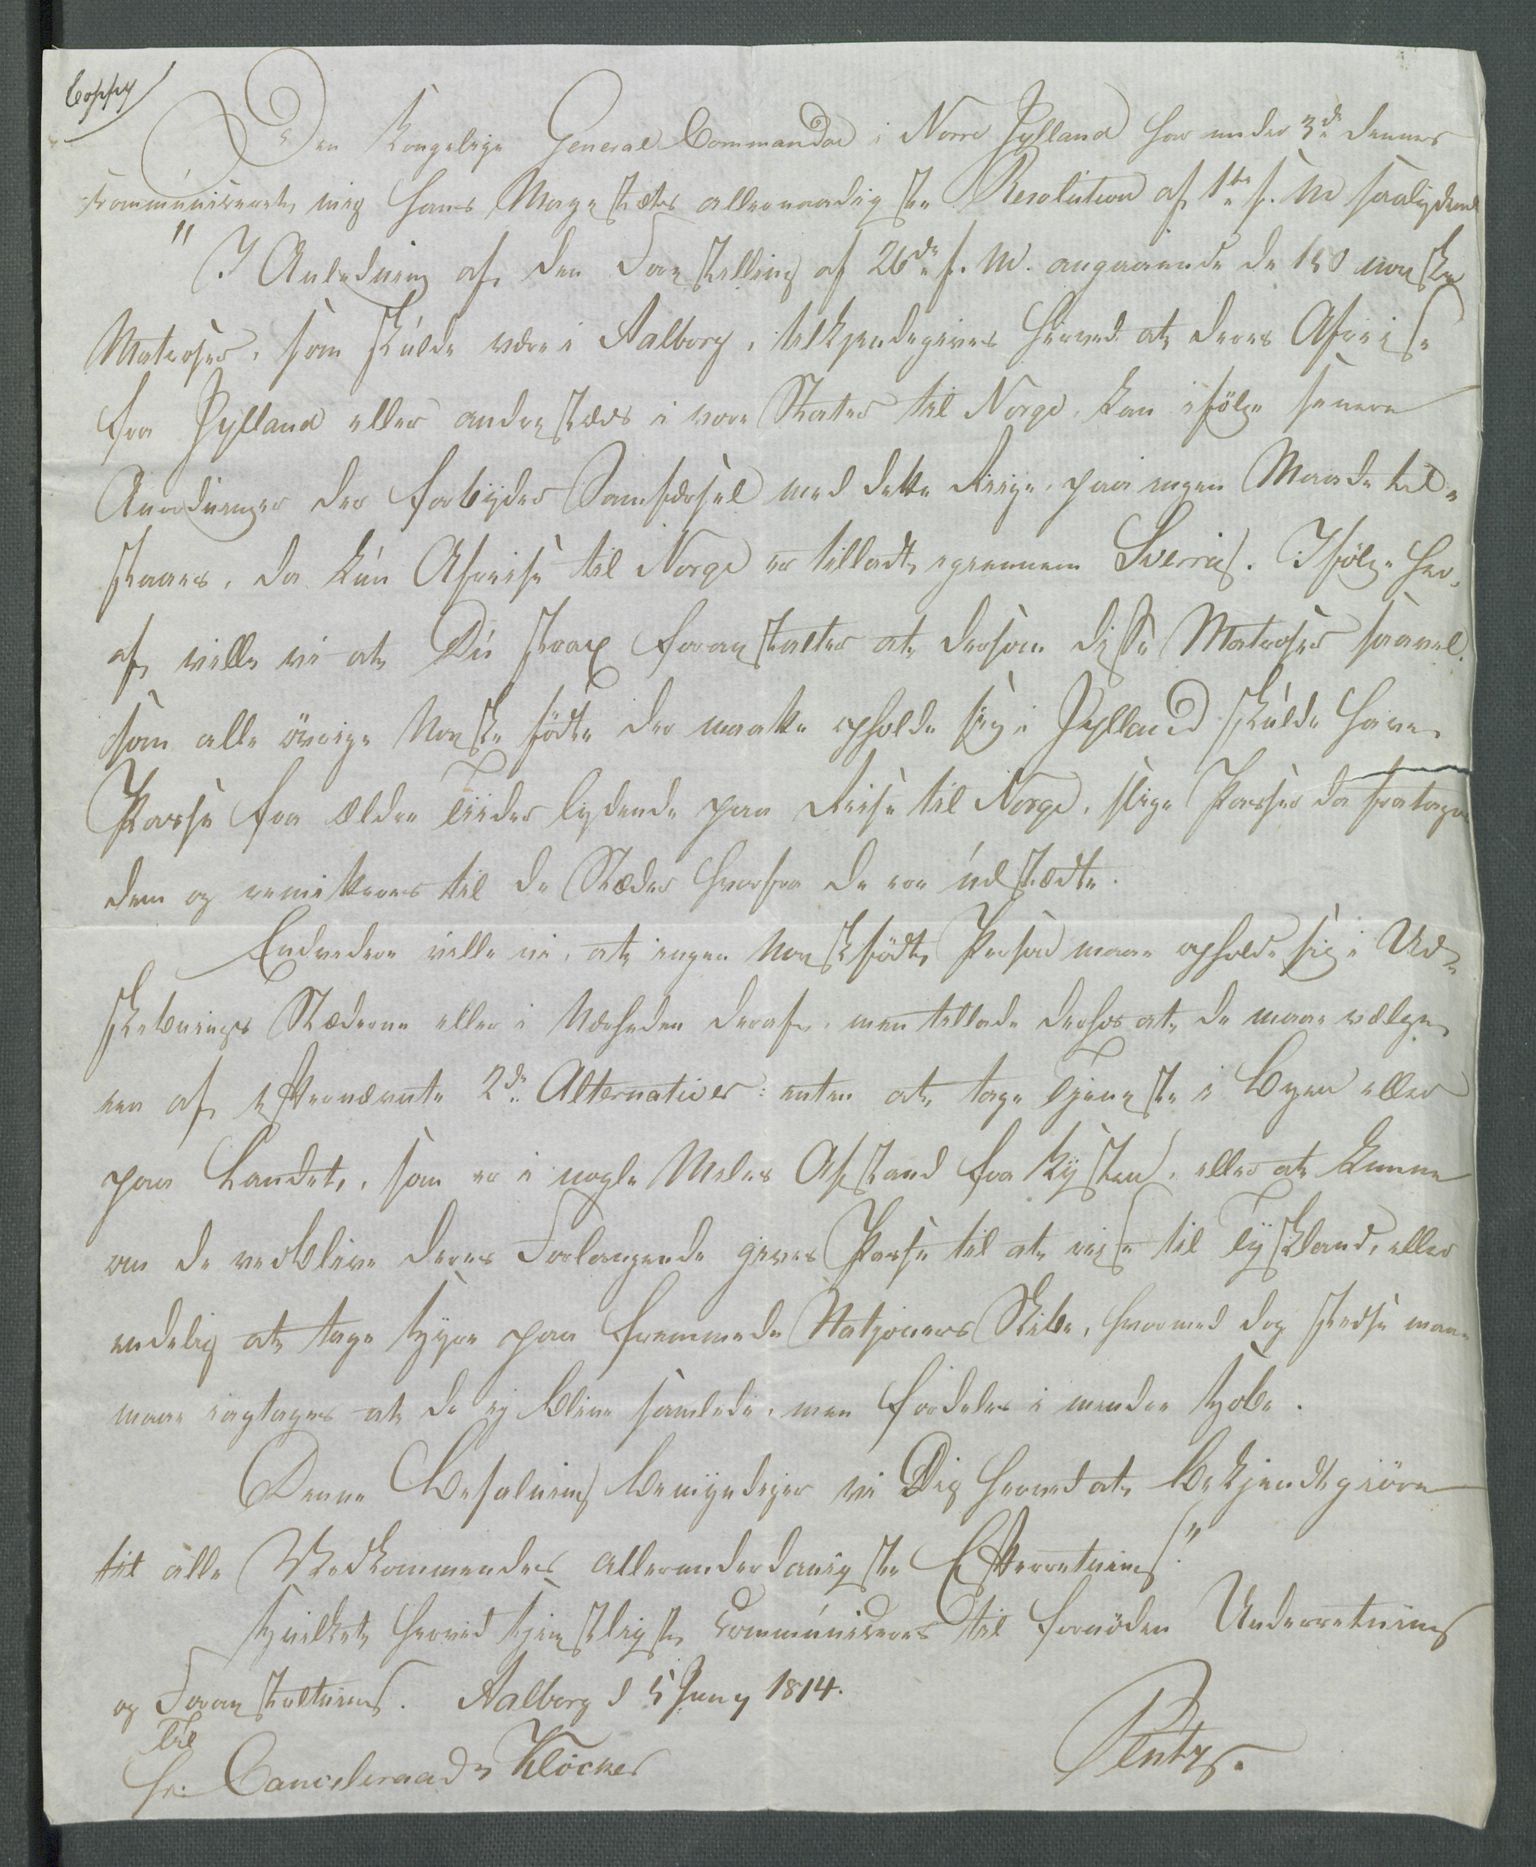 Coppy
Den Kongelige General Commandoe i Nørre Jylland har under 3de dennes
kommúniceret mig Hans Majestæts allernaadigste Resolution af 1te s. M saalydende
" I Anledning af den Forestilling af 26de f. M. angaaende de 150 norske
Matroser, som skulde være i Aalborg, tilkjendegives herved at deres Afreise
fra Jylland eller andre stæds i vore Stater til Norge, kan ifølge senere
Anordninger der forbÿder Samfærsel med dette Riige, paa ingen Maade til-
staaes, da kún Afreise til Norge er tilladt igiennem Sverrig. Ifølge her-
af ville vi at Dú strax foranstalter at dersom disse Matroser saavel-
som alle øvrige Norske fødte der maatte opholde sig i Jylland skúlde have
Passe fra ældre Tiider lydende paa Reise til Norge, slige Passer da fratages
dem og remitteres til de Stæder hvorfra de ere údstædte.
Endvidere ville vi, at ingen Norskfødt Person maae opholde sig i Ud-
skibnings Stæderne eller i Nærheden deraf, men tillade derhos at de maae vælge
een af efternævnte 2de Alternativer: enten at tage Tjeneste i Byen eller
paa Landet, som er i nogle Miles Afstand fra Kÿsten, eller at kunne
om de vedblive deres Forlangende gives Passe til at reise til Tÿskland, eller
endelig at tage hyre paa fremmede Natjoners Skibe, hvorved dog stedse maae
maae iagtages at de ej blive samlede, men fordeles i mindre hobe.
Denne Befalning bemÿndiger vi Dig herved at bekjendtgiøre
til alle Vedkommendes allerunderdanigste Efterretning."
Hvilket herved tjenstligst Commúniceres til fornøden Underretning
og Foranstaltning. Aalborg d 5 Juny 1814.
Til
Hr. Cancelieraad Klocker
Pentz.